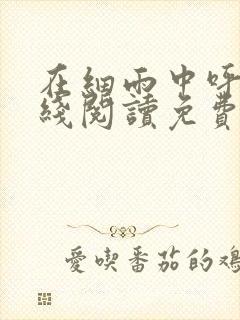 在細雨中呼
綫閱讀免費
愛喫番茄的鷄